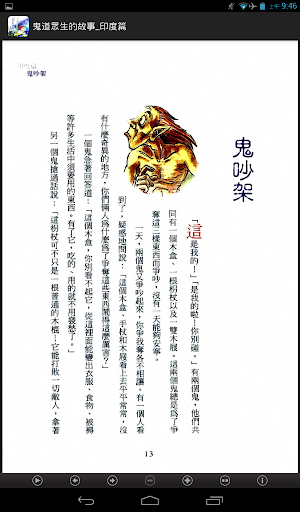 上午 9:46
鬼道眾生的故事_印度篇
鬼吵架
鬼吵架
「這是我的!」「是我的啦!你別碰。」有兩個鬼,他們共
同有一個木盒、一根枴杖以及一雙木屐。這兩個鬼總是為了爭
奪這三樣東西而爭吵,沒有一天能夠安寧。
一天,兩個鬼又爭吵起來,你爭我奪各不相讓。有一個人看
到了,疑惑地問說:「這個木盒、手杖和木屐看上去平平常常,沒
有什麼奇異的地方,你們倆人為什麼為了爭奪這些東西鬧得這麼厲害?」
一個鬼急著回答道:「這個木盒,你別看不起它,從這裡面能變出衣服、食物、被褥
等許多生活中須要用的東西。有了它,吃的、用的就不用發愁了。」
另一個鬼搶過話說:「這根枴杖可不只是一根普通的木棍!它能打敗一切敵人,拿著
13